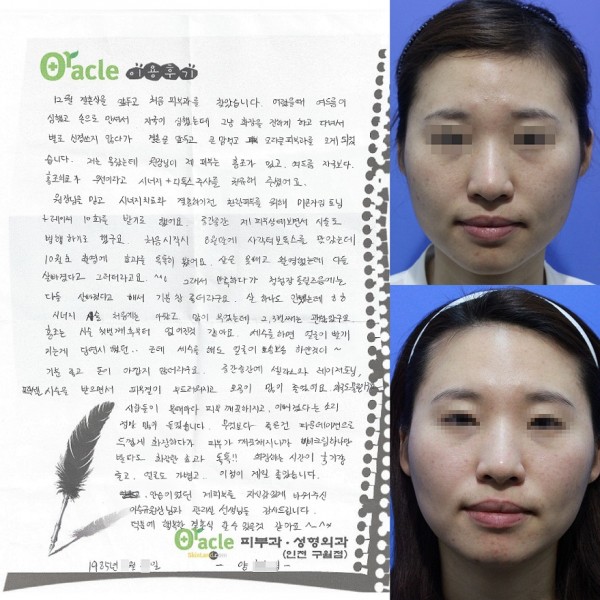 Oracle 이용후기
12월 결혼식을 앞두고 처음 피부과를 찾았습니다. 어렸을때 여드름이
심했고 손으로 만져서 자국이 심했는데 그냥 화장을 진하게 하고 다녀서
별로 신경쓰지 않다가 결혼을 앞두고 큰 맘먹고 오라클피부과를 오게 되었
습니다. 저는 몰랐는데 원장님이 제 피부는 홍조가 있고, 여드름 자국보다.
홍조치료가 우선이라고 시너지 + 주사를 처방해 주셨어요.
원장님을 믿고 시너지치료와 피부를 위해 토닝
10회를 받기로 했어요. 중간중간 시술도
병행하기로 했구요. 처음시작시 8월말에 사각턱보톡스를 맞았는데
10월초 촬영에 효과를 톡톡히 봤어요. 살은 못빼고 촬영했는데 다들
살빠졌다고 그러더라고요. ^^ 그래서 만족하다가 청첩장 돌릴즈음에는
다들 살빠졌다고 해서 기분 참 좋더라구요. 살 하나도 안뺐는데 ㅎㅎ
시너지 시술 처음에는 따갑고 많이 아팠는데 2,3번째는 괜찮았구요
홍조는 시술 첫번째 후부터 없어진것 같아요. 세수를 하면 얼굴이 빨개
지는게 당연시 했던.. 근데 세수를 해도 얼굴이 뽀송뽀송 하얀것이 ~
기분 좋고 돈이 아깝지 않더라구요. 중간중간에 레이저토닝,
시술을 받으면서 피부결이 부드러워지고 모공이 많이 좋아졌어요.
사람들이 볼때마다 피부 깨끗해지고, 이뻐졌다는 소리
정말 많이 들었습니다. 무엇보다 좋은건 파운데이션으로
두껍게 화장하다가 피부가 깨끗해지니까 비비크림하나만
발라도 화장한 효과 톡톡!! 화장하는 시간이 줄어들
좋고, 얼굴도 가볍고.. 이점이 제일 좋았습니다.
이었던 제피부를 자신감있게 바꿔주신
원장님과 관리실 선생님들 감사드립니다.
덕분에 행복한 결혼식 할 수 있을것 같아요 ^-^*
Oracle 피부과·성형외과
(인천 구월점)
1985년 월 일 - 양 -